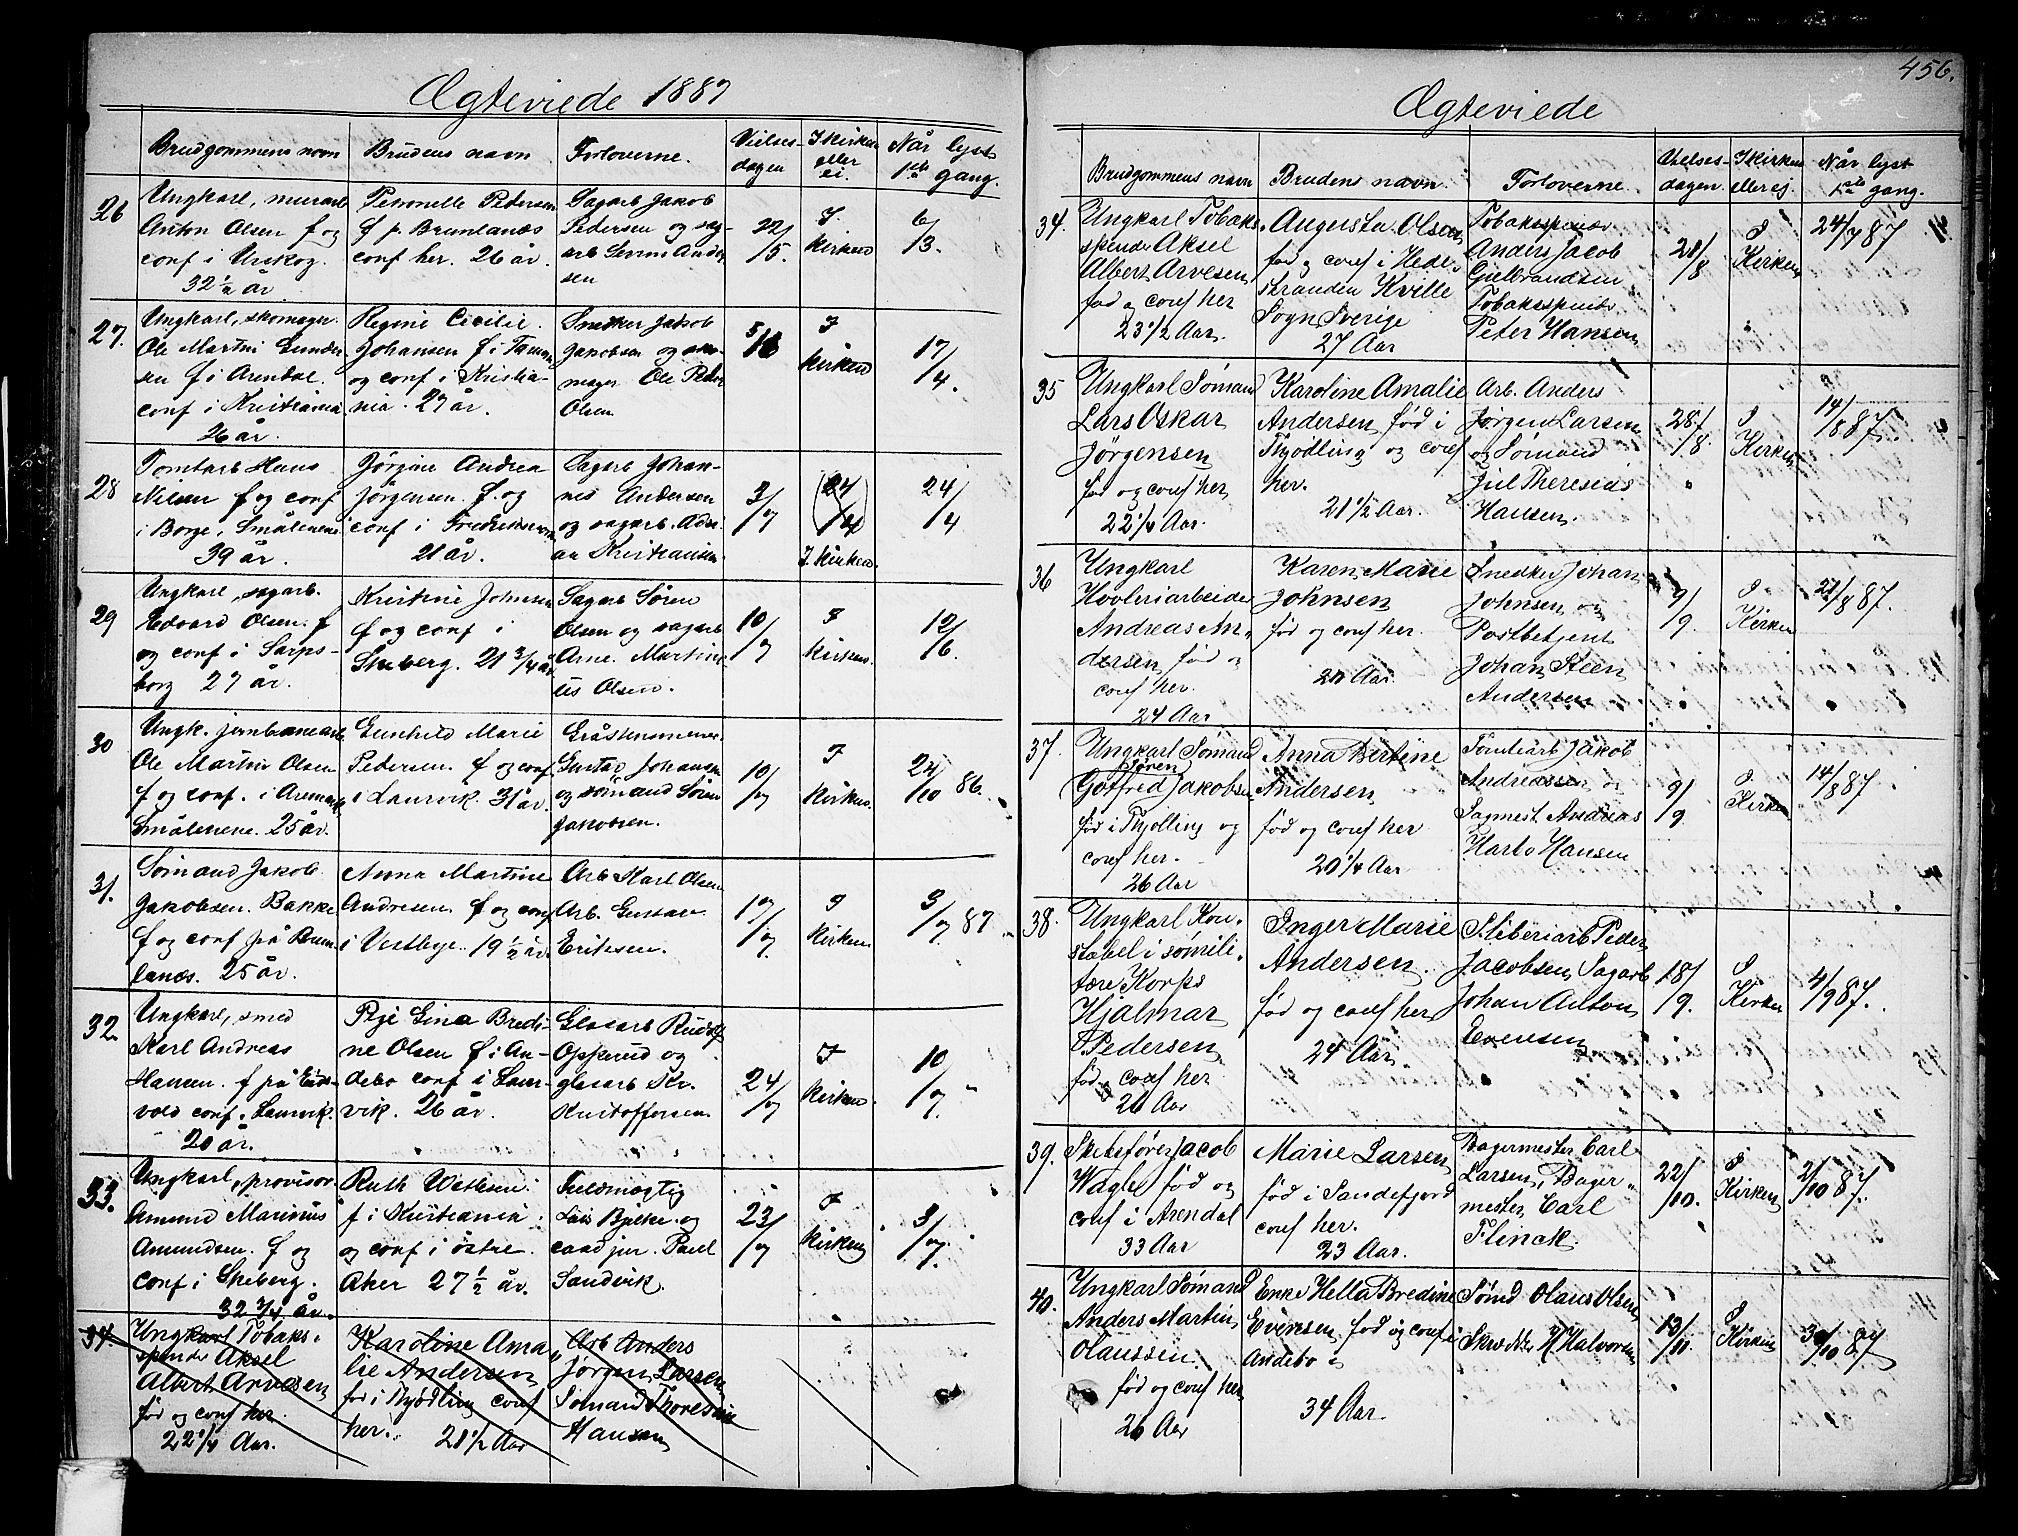 Ægteviede 1887
Brudgommens navn
Brudens navn
Forloverne.
Vielses-
dagen
I kirken
eller
ei.
Når lyst
1ste gang.
26
Ungkarl, murarb
Anton Olsen f og
conf i Urskog.
32 ½ år
Petronelle Pedersen
f p. Brunlanæs
conf her. 26 år.
Sagarb Jakob
Pedersen og sag-
arb Simon Ander
sen
22/
/5.
I
kirken
6/
/3.
27.
Ungkarl, skomager
Ole Martin Gunder
sen f i Arendal.
conf i Kristiania
26 år.
Regine Cicilie
Johansen f i
og conf i Kristia-
nia. 27 år.
Snedker Jakob
Jakobsen og sko-
mager Ole Peder
Olsen
5/6
I
kirken
17/
/4.
28
Tomtarb Hans
Nilsen f og conf
i Borge, Smålenene
39 år.
Jørgine Andrea
Jørgensen. f. og
conf i Fredriksværn
21 år.
Sagarb Johan-
nes Andersen
og sagarb. Adri
an Kristiansen
3/
/7
(24
/4)
I kirken.
24/
/4
29
Ungkarl, sagarb.
Edvard Olsen. f
og conf i Sarps-
borg 27 år.
Kristine Johnsen
f og conf i
Skeberg. 21 3/4 år
Sagarb Sören
Olsen og sagarb
Arne Martini
us Olsen.
10/
/7
I
kirken.
12/
/6.
30
Ungk. jernbanearb.
Ole Martin Olsen
f og conf. i Aremark
Smålenene. 25 år.
Gunhild Marie
Pedersen. f og conf
i Laurvik. 31 år.
Gråstensminer
Gustav Johansen
og sömand Sören
Jakobsen.
10/
/7
I
kirken.
24/
/10 86.
31.
Sömand Jakob
Jakobsen. Bakke
f og conf på Brun
lanæs. 25 år.
Anna Martine
Andresen f og conf
i Vestbye. 19 ½ år.
Arb Karl Olsen
Arb. Gustav
Eriksen.
17/
/7
I
kirken
3/
/7. 87.
32.
Ungkarl, smed
Karl Andreas
Hansen. f på Eids-
vold conf. Laurvik.
20 år.
Pige Gina Bredi-
ne Olsen f i An-
debo conf i Laur-
vik. 26 år.
Glasarb Rudolf
Opperud og
glasarb Kr.
Kristoffersen
24/
/7
I
kirken.
10
/7.
33.
Ungkarl, provisor
Amund Marinius
Amundsen. f og
conf i Skeberg.
32 3/4 år.
Ruth
f i Kristiania
og conf i östre
Aker 27 ½ år.
Fuldmægtig
Lars Bjelke. og
cand jur. Paul
Sandvik.
23/
/7
I
kirken
3/
/7.
34.
Ungkarl Tobaks-
spinder Aksel
Albert Arvesen
föd og conf her.
22 1/4 Aar.
Karoline Ama
lie Andersen
föd i Thjödling conf
her. 21 1/2 Aar
Arb Anders
Jørgen Larsen
Sömand
Hansen
456.
Ægteviede
Brudgommens navn
Brudens navn.
Forloverne.
Vielses-
dagen
I kirken
eller ej.
Når lyst
1ste gang.
34.
Ungkarl Tobaks
spinder Aksel
Albert Arvesen
fød og conf her
23 1/2 Aar.
Augusta Olsen
fød og conf i Hede-
stranden Kville
Sogn Sverige
27 Aar
Tobaksspinder
Anders Jacob
Gulbrandsen
Tobaksspinder
Peter Hansen
21/
/8
I
Kirken
24/7 87
35
Ungkarl Sømand
Lars Oskar
Jørgensen
fød og conf her
22 1/4 Aar.
Karoline Amalie
Andersen fød i
Thjødling og conf
her.
21 1/2 Aar.
Arb. Anders
Jørgen Larsen
og Sømand
Theresius
Hansen.
28/
/8.
I
Kirken
14/
/8 87.
36
Ungkarl
Høvleriarbeider
Andreas An-
dersen fød og
conf her.
24 Aar
Karen Marie
Johnsen
fød og conf her.
Snedker Johan
Johnsen og
Postbetjent
Johan Steen
Andersen
/9.
I
Kirken
21/8 87.
37.
Ungkarl Sømand
Søren
Gotfred Jakobsen
fød i Thjølling og
conf her.
26 Aar
Anna Bertine
Andersen
fød og conf her
20 1/4 Aar
Tomtearb Jakob
Andreassen og
Sagmest. Andreas
Harbo Hansen
9/
/9.
I
Kirken
14/
/8 87
38.
Ungkarl Kon-
stabel i sømili-
tære Korps
Hjalmar
Pedersen
fød og conf her
26 Aar
Inger Marie
Andersen.
fød og conf her
24 Aar.
Sliberiarb Peder
Jacobsen Sagarb
Johan Anton
Evensen
18/
/9.
I
Kirken
4/9 87.
39.
Skibsfører Jacob
Wagle fød og
conf i Arendal
33 Aar
Marie Larsen
fød i Sandefjord
conf her.
23 Aar.
Bagermester Carl
Larsen, Bager-
mester Carl
Flinck.
22/
/10.
I
Kirken
2/10 87.
40.
Ungkarl Sømand
Anders Martin
Olaussen.
fød og conf her
26 Aar
Enke Hella Bredine
Evensen, fød og conf i
Andebo
34 Aar.
Sømd Olaus Olsen
Skrædder H Halvorsen
13/
/11.
I
Kirken
30/10 87